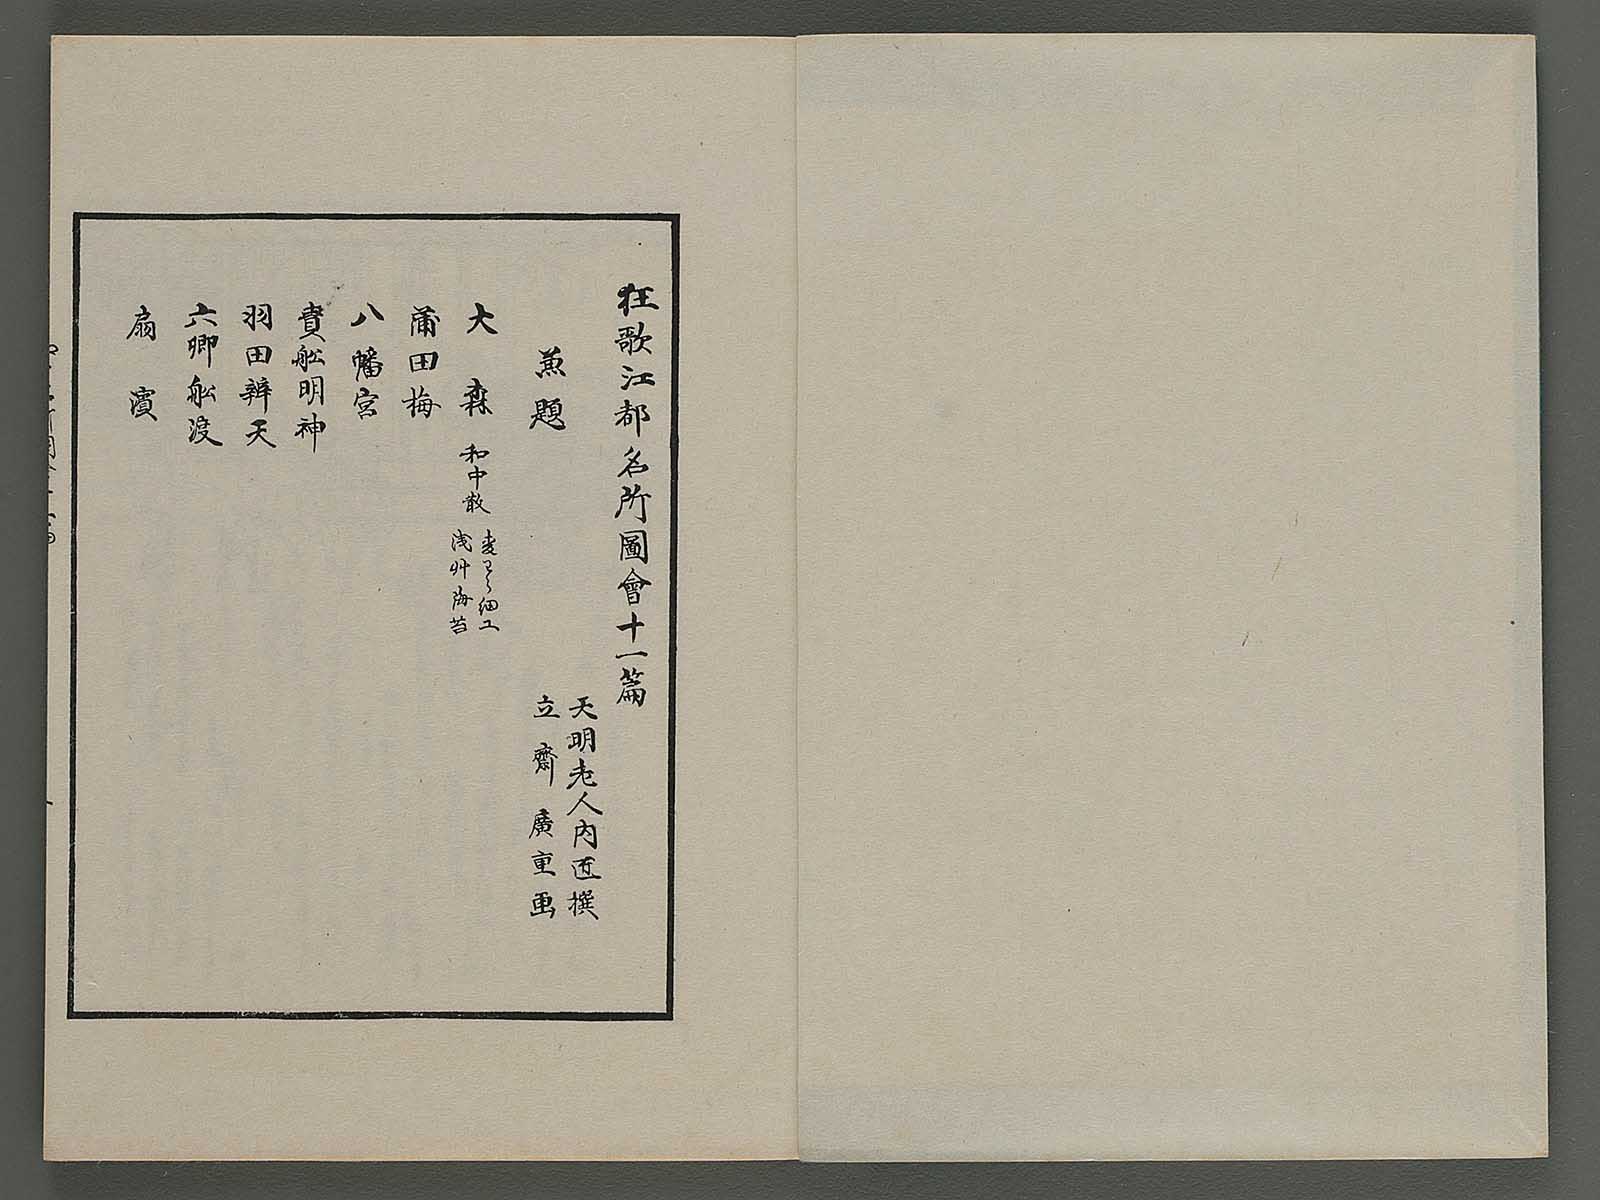 狂歌江都名所圖會十一篇
天明老人内匠撰
立齋廣重画
兼題
大森 和中散 麦わら細工
浅艸海苔
蒲田梅
八幡宮
貴舩明神
羽田辨天
六郷舩渡
扇濱